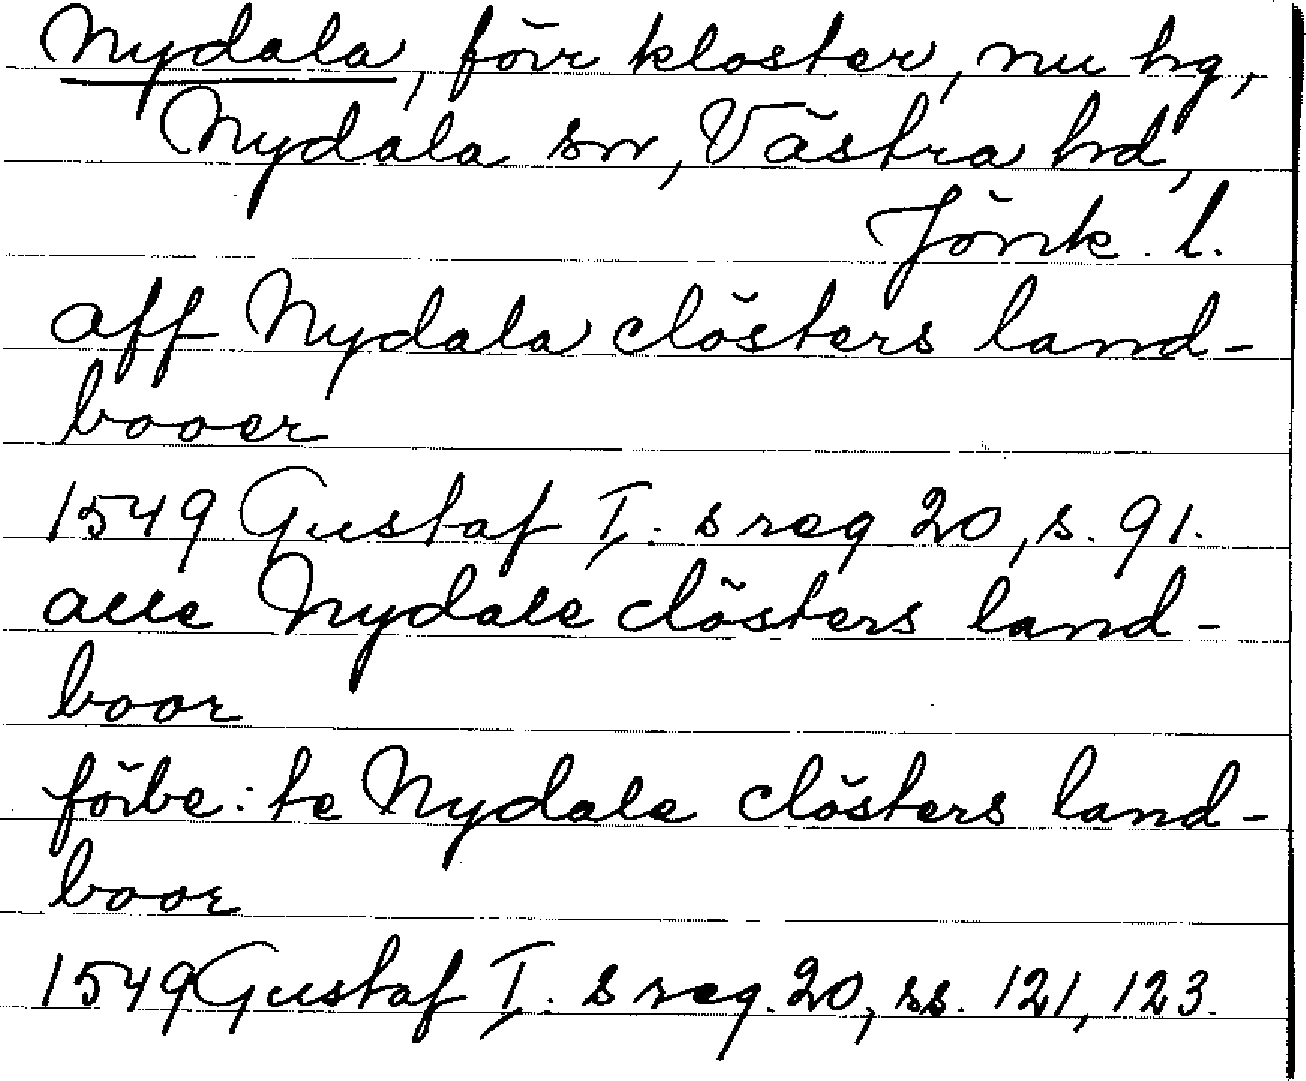 Nydala, förr kloster, nu hg,
Nydala sn, Västra hd,
Jönk. l.
aff Nydala clösters land-
booer
1549 Gustaf I. s reg 20, s. 91.
alle Nydale clösters land-
boor
förbe: te Nydale clösters land-
boor
1549 Gustaf I. s reg. 20, ss. 121, 123.